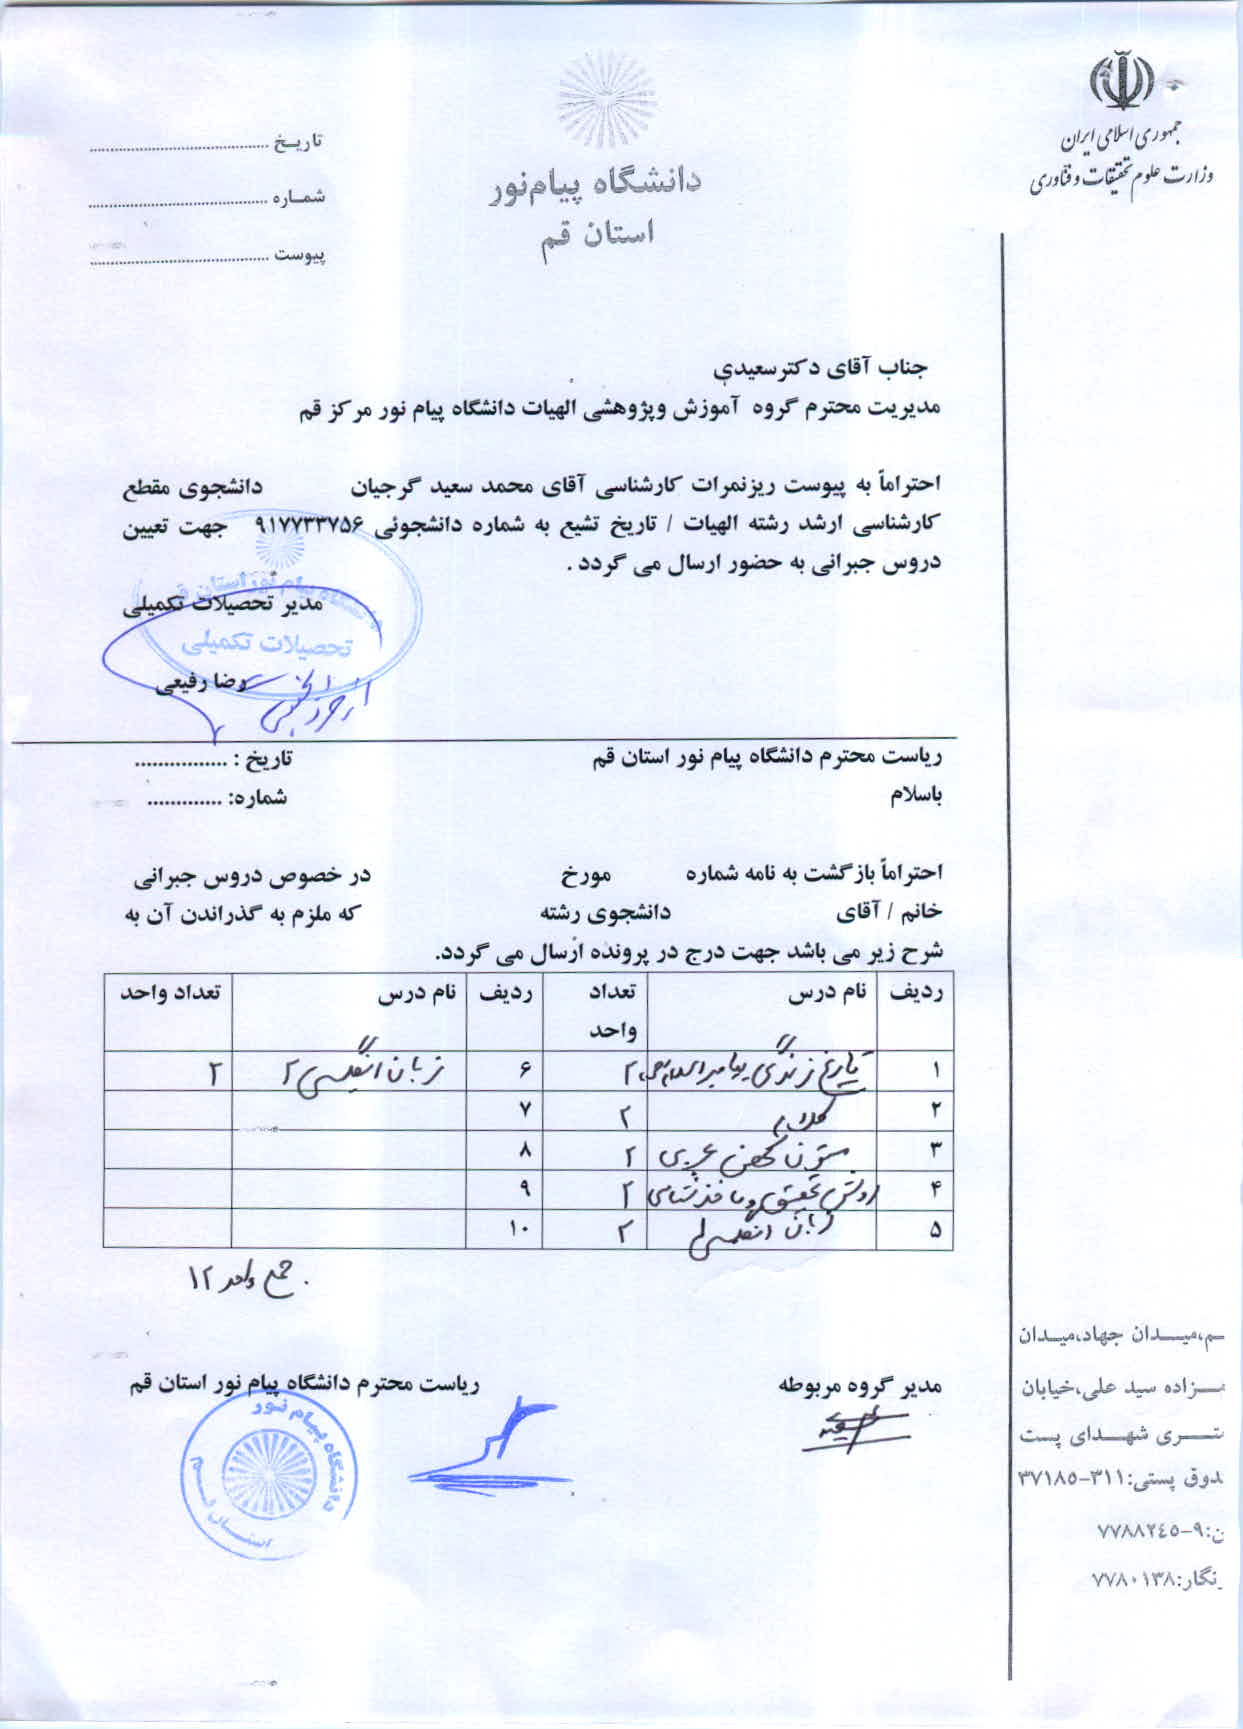 جمهوری اسلامی ایران
وزارت علوم تحقیقات و فناوری
دانشگاه پیام‌نور
استان قم
تاریخ ..........................................
شماره ..........................................
پیوست ..........................................
جناب آقای دکترسعیدی
مدیریت محترم گروه آموزش وپژوهشی الهیات دانشگاه پیام نور مرکز قم
احتراماً به پیوست ریزنمرات کارشناسی آقای محمد سعید گرجیان دانشجوی مقطع
کارشناسی ارشد رشته الهیات / تاریخ تشیع به شماره دانشجوئی ۹۱۷۷۳۳۷۵۶ جهت تعیین
دروس جبرانی به حضور ارسال می گردد .
مدیر تحصیلات تکمیلی
دانشگاه پیام نور استان قم
تحصیلات تکمیلی
رضا رفیعی
ریاست محترم دانشگاه پیام نور استان قم
تاریخ : ................
باسلام
شماره: .............
احتراماً بازگشت به نامه شماره مورخ در خصوص دروس جبرانی
خانم / آقای دانشجوی رشته که ملزم به گذراندن آن به
شرح زیر می باشد جهت درج در پرونده ارسال می گردد.
ردیف نام درس تعداد واحد ردیف نام درس تعداد واحد
۱ تاریخ زندگی پیامبر اسلام(ص) ۲ ۶ زبان انگلیسی ۲ ۲
۲ کلام ۲ ۷
۳ متون کهن عربی ۲ ۸
۴ روش تحقیق و ماخذشناسی ۲ ۹
۵ زبان انگلیسی ۱ ۲ ۱۰
جمع واحد ۱۲
مدیر گروه مربوطه
ریاست محترم دانشگاه پیام نور استان قم
دانشگاه پیام نور
استان قم
ـم،میـدان جهاد،میـدان
ـزاده سید علی،خیابان
ـتـری شهـدای پست
ـدوق پستی:۳۱۱-۳۷۱۸۵
ن:۹-۷۷۸۸۲٤۵
ـنگار:۷۷۸۰۱۳۸